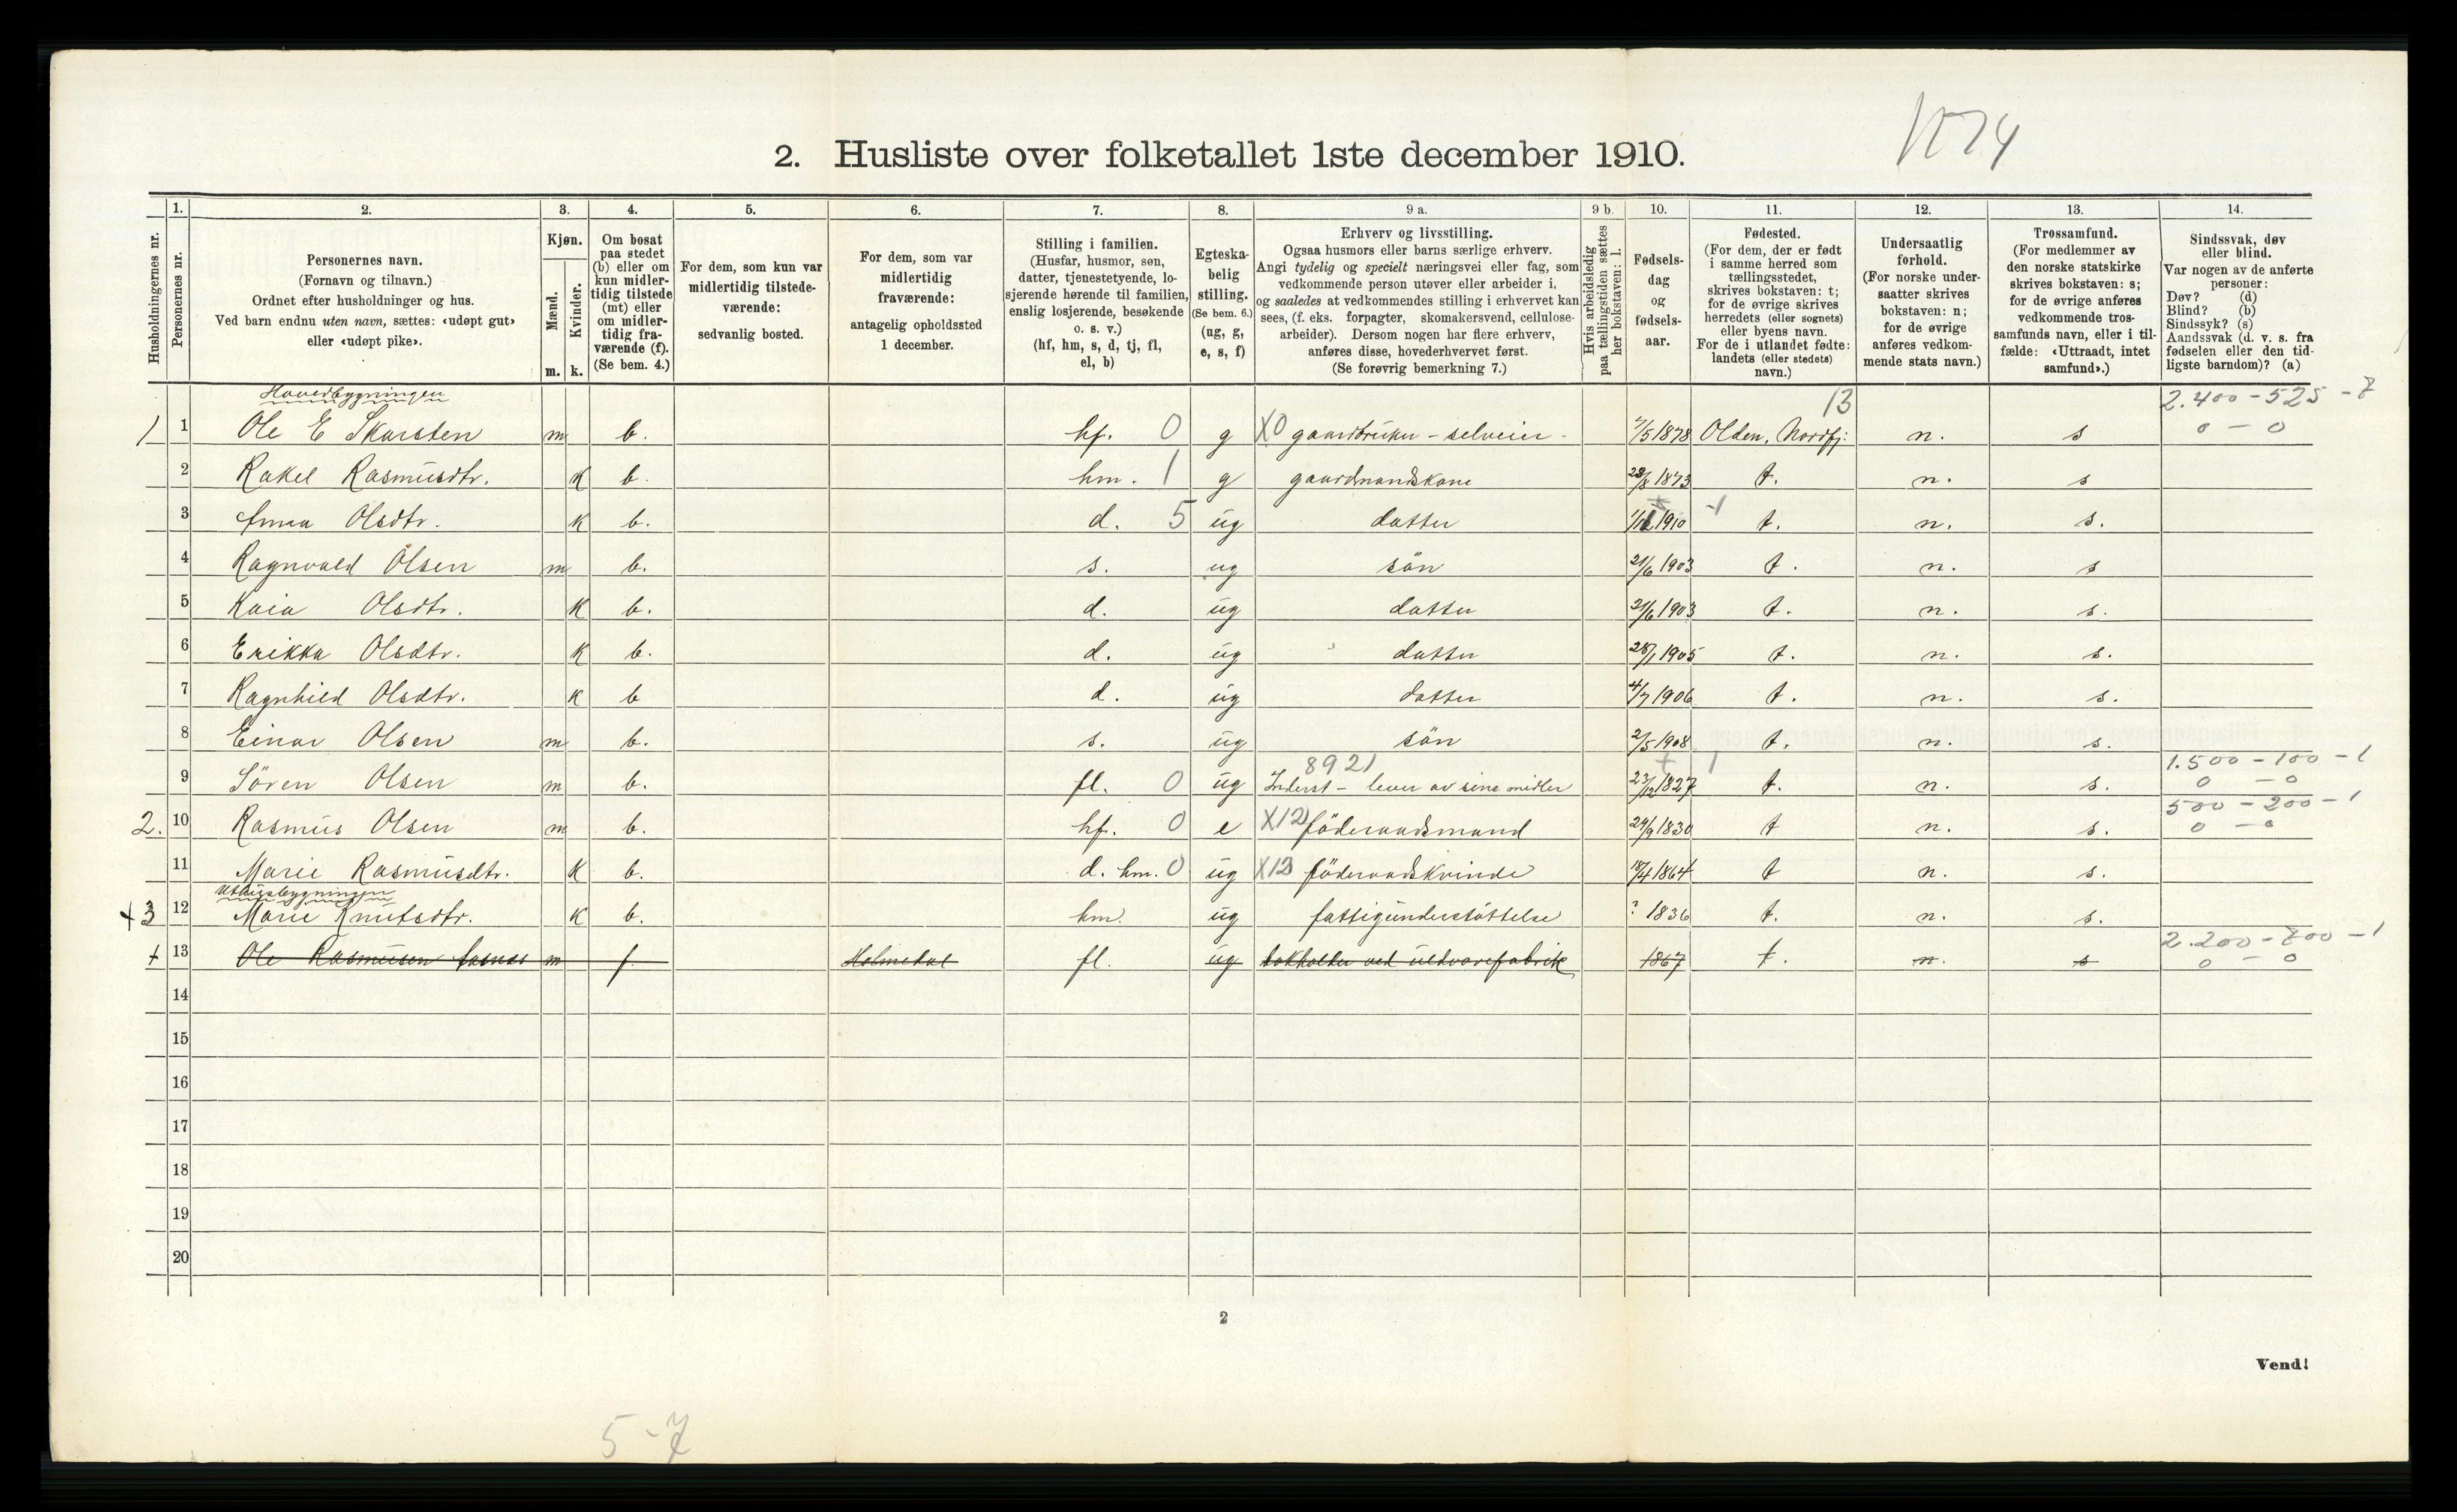 2. Husliste over folketallet 1ste december 1910.
Husholdningernes nr.
1. Personernes nr.
2. Personernes navn. (Fornavn og tilnavn.) Ordnet efter husholdninger og hus. Ved barn endnu uten navn, sættes: «udøpt gut» eller «udøpt pike».
3. Kjøn. Mænd. m. Kvinder. k.
4. Om bosat paa stedet (b) eller om kun midlertidig tilstede (mt) eller om midlertidig fraværende (f). (Se bem. 4.)
5. For dem, som kun var midlertidig tilstedeværende: sedvanlig bosted.
6. For dem, som var midlertidig fraværende: antagelig opholdssted 1 december.
7. Stilling i familien. (Husfar, husmor, søn, datter, tjenestetyende, losjerende hørende til familien, enslig losjerende, besøkende o. s. v.) (hf, hm, s, d, tj, fl, el, b)
8. Egteskabelig stilling. (Se bem. 6.) (ug, g, e, s, f)
9 a. Erhverv og livsstilling. Ogsaa husmors eller barns særlige erhverv. Angi tydelig og specielt næringsvei eller fag, som vedkommende person utøver eller arbeider i, og saaledes at vedkommendes stilling i erhvervet kan sees, (f. eks. forpagter, skomakersvend, cellulosearbeider). Dersom nogen har flere erhverv, anføres disse, hovederhvervet først. (Se forøvrig bemerkning 7.)
9 b. Hvis arbeidsledig paa tællingstiden sættes her bokstaven: l.
10. Fødselsdag og fødselsaar.
11. Fødested. (For dem, der er født i samme herred som tællingsstedet, skrives bokstaven: t; for de øvrige skrives herredets (eller sognets) eller byens navn. For de i utlandet fødte: landets (eller stedets) navn.)
12. Undersaatlig forhold. (For norske undersaatter skrives bokstaven: n; for de øvrige anføres vedkommende stats navn.)
13. Trossamfund. (For medlemmer av den norske statskirke skrives bokstaven: s; for de øvrige anføres vedkommende trossamfunds navn, eller i tilfælde: «Uttraadt, intet samfund».)
14. Sindssvak, døv eller blind. Var nogen av de anførte personer: Døv? (d) Blind? (b) Sindssyk? (s) Aandssvak (d. v. s. fra fødselen eller den tidligste barndom)? (a)
Hovedbygningen 13 2.400 - 525 - 7
1 1 Ole E Skarsten m b. hf. 0 g X0 gaardbruker - selveier 7/5 1878 Olden, Nordfj: n. s 0 - 0
2 Rakel Rasmusdtr. k b. hm. 1 g gaardmandskone 28/8 1873 t. n. s
3 Anna Olsdtr. k b. d. 5 ug datter 1910 t. n. s.
4 Ragnvald Olsen m b. s. ug sön 21/6 1903 t. n. s
5 Kaia Olsdtr. k b. d. ug datter 21/6 1903 t. n. s.
6 Erikka Olsdtr. k b. d. ug datter 28/1 1905 t. n. s.
7 Ragnhild Olsdtr. k b d. ug datter 4/7 1906 t. n. s.
8 Einar Olsen m b. s. ug sön 2/5 1908 t. n. s.
8921 1.500 - 100 - 1
9 Sören Olsen m b. fl. 0 ug Inderst - lever av sine midler 23/12 1827 t. n. s. 0 - 0
500 - 200 - 1
2. 10 Rasmus Olsen m b. hf. 0 e X12 föderaadsmand 24/9 1830 t n. s. 0 - 0
11 Marie Rasmusdtr. k b. d. hm. 0 ug X12 föderaadskvinde 18/4 1864 t n. s.
Uthusbygningen
3 12 Marie Knutsdtr. k b. hm. ug fattigunderstöttelse ? 1836 t. n. s.
2.200 - 700 - 1
13 Ole Rasmusen m f. Holmedal fl. ug bokholder ved uldvarefabrik 1867 t. n. s 0 - 0
14
15
16
17
18
19
20
2
Vend!
5 - 7